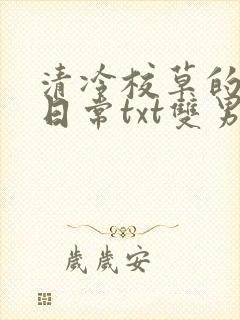 清冷校草的
日常txt雙男
歲歲安